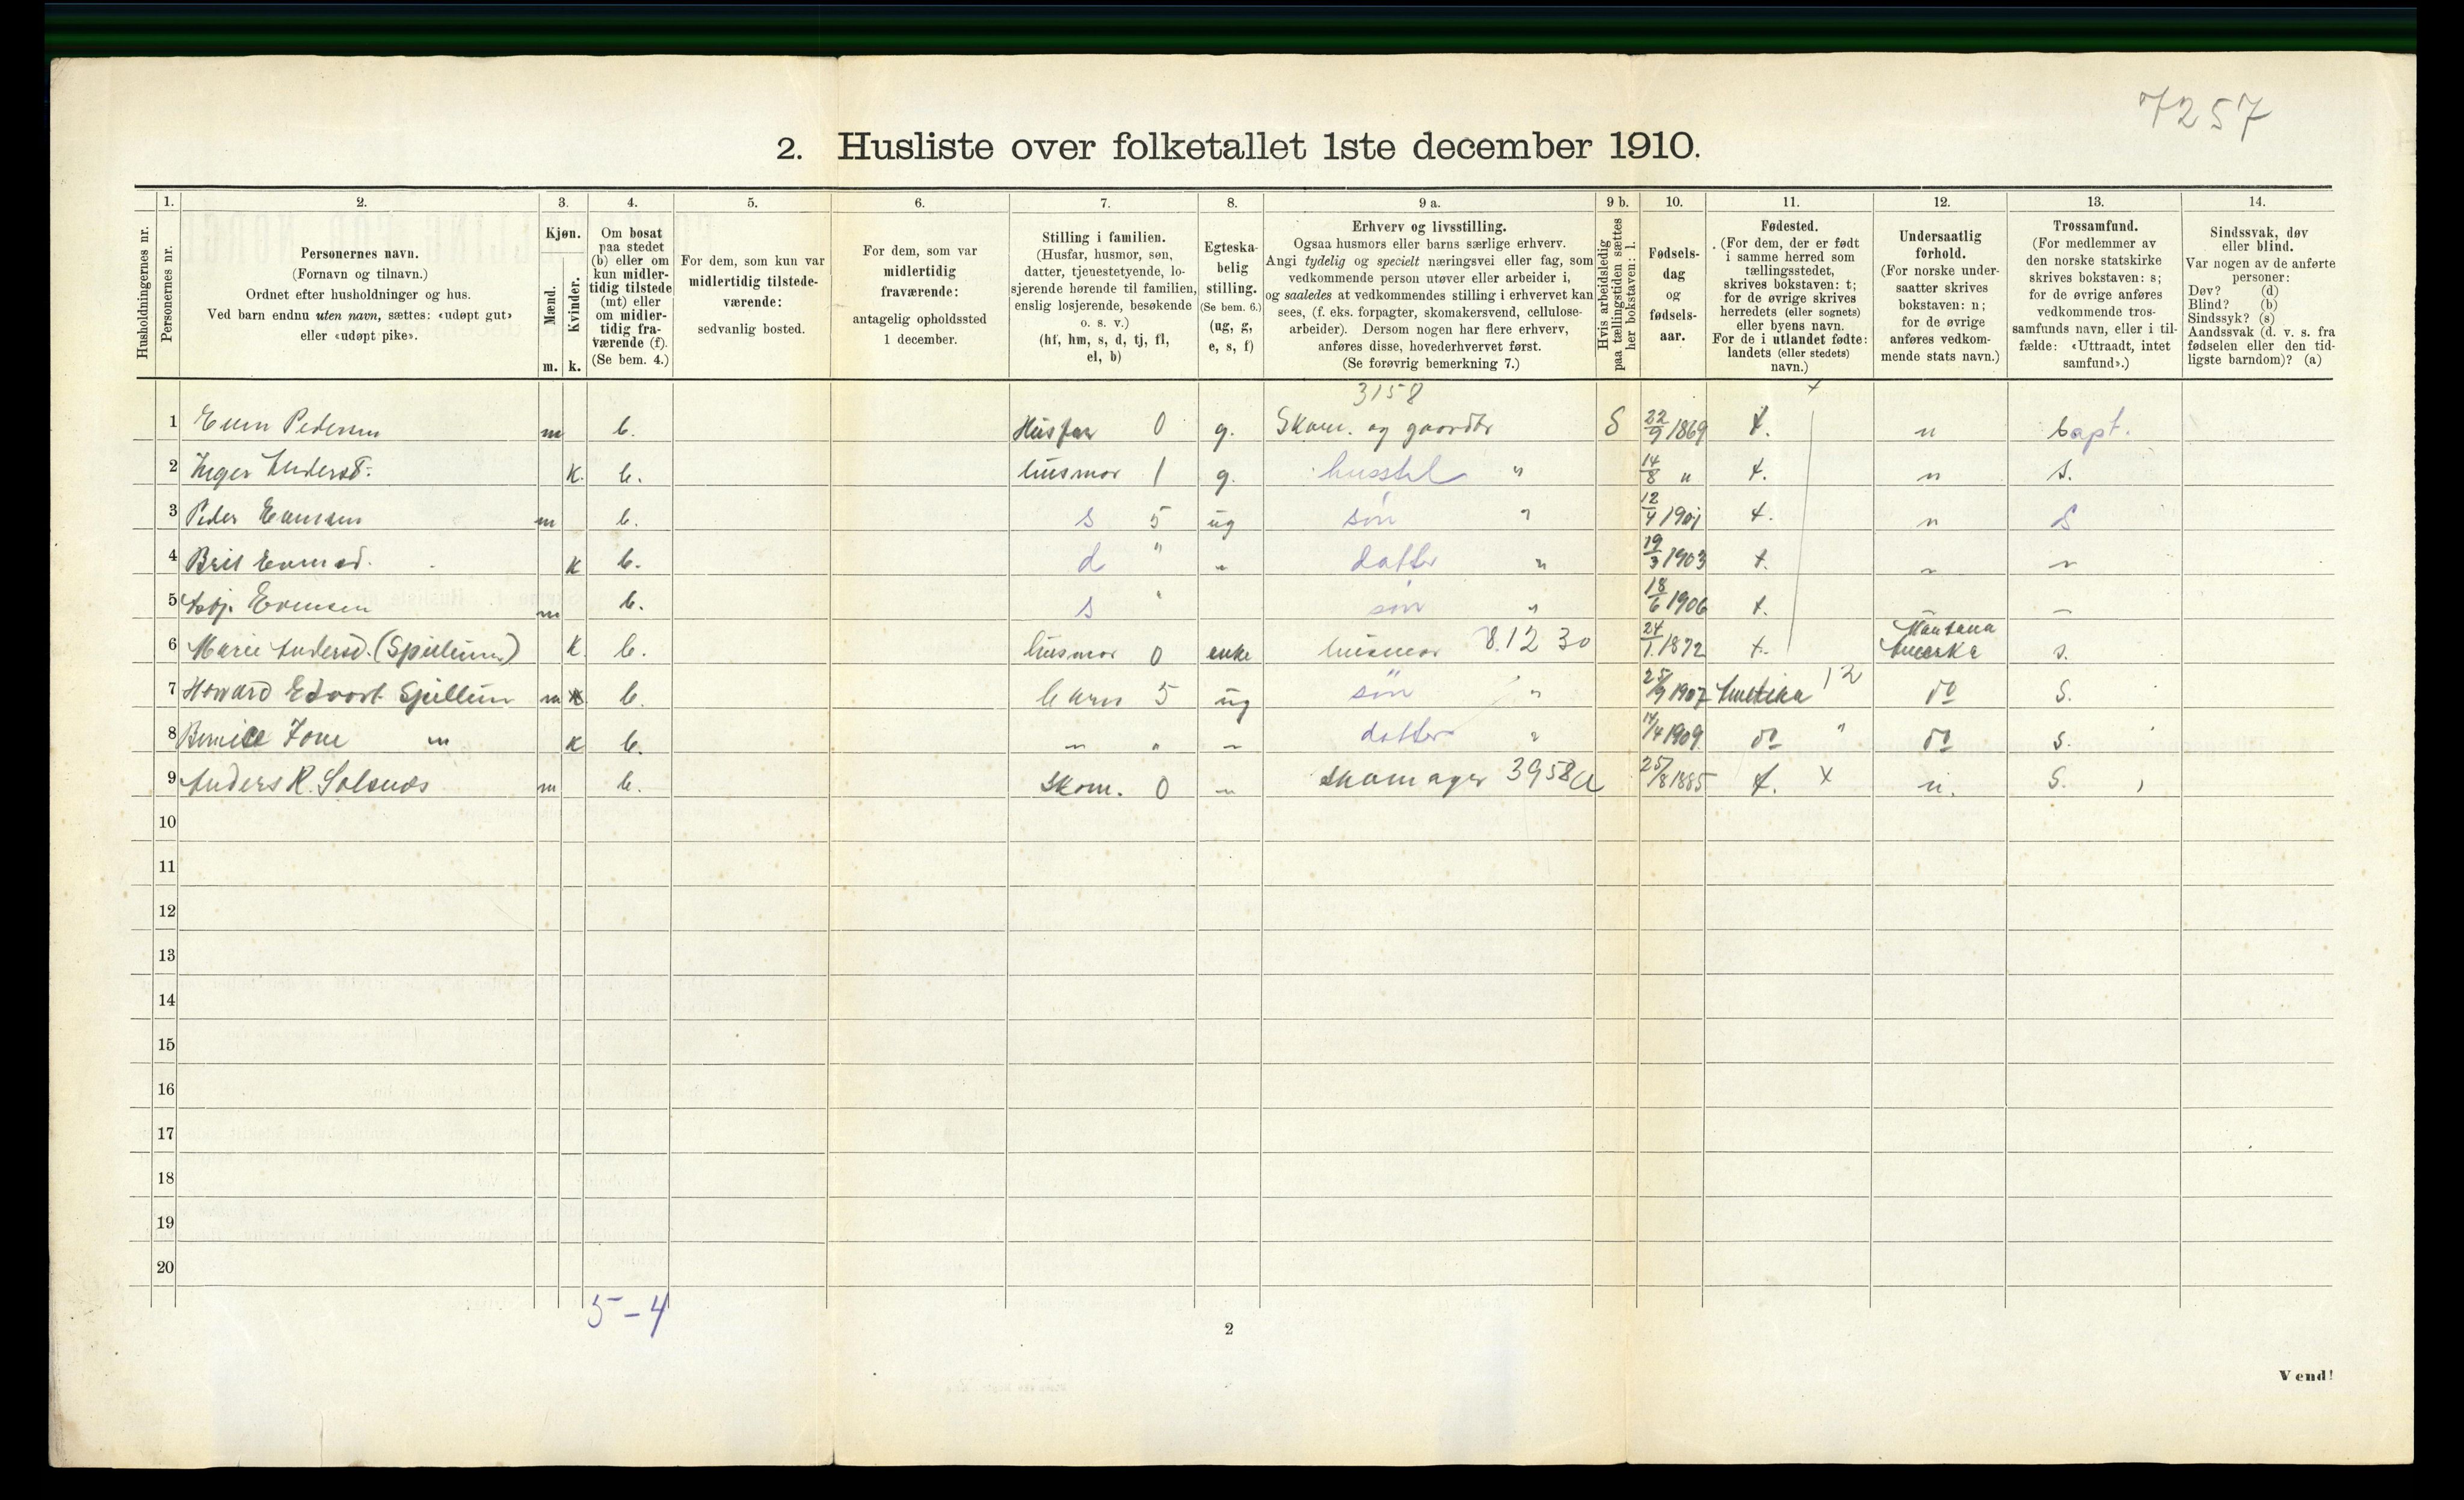 7257
2. Husliste over folketallet 1ste december 1910.
Husholdningernes nr.
1.
Personernes nr.
2.
Personernes navn.
(Fornavn og tilnavn.)
Ordnet efter husholdninger og hus.
Ved barn endnu uten navn, sættes: «udøpt gut»
eller «udøpt pike».
3.
Kjøn.
Mænd.
Kvinder.
m. k.
4.
Om bosat
paa stedet
(b) eller om
kun midler-
tidig tilstede
(mt) eller
om midler-
tidig fra-
værende (f).
(Se bem. 4.)
5.
For dem, som kun var
midlertidig tilstede-
værende:
sedvanlig bosted.
6.
For dem, som var
midlertidig
fraværende:
antagelig opholdssted
1 december.
7.
Stilling i familien.
(Husfar, husmor, søn,
datter, tjenestetyende, lo-
sjerende hørende til familien,
enslig losjerende, besøkende
o. s. v.)
(hf, hm, s, d, tj, fl,
el, b)
8.
Egteska-
belig
stilling.
(Se bem. 6.)
(ug, g,
e, s, f)
9 a.
Erhverv og livsstilling.
Ogsaa husmors eller barns særlige erhverv.
Angi tydelig og specielt næringsvei eller fag, som
vedkommende person utøver eller arbeider i,
og saaledes at vedkommendes stilling i erhvervet kan
sees, (f. eks. forpagter, skomakersvend, cellulose-
arbeider). Dersom nogen har flere erhverv,
anføres disse, hovederhvervet først.
(Se forøvrig bemerkning 7.)
9 b.
Hvis arbeidsledig
paa tællingstiden sættes
her bokstaven: l.
10.
Fødsels-
dag
og
fødsels-
aar.
11.
Fødested.
(For dem, der er født
i samme herred som
tællingsstedet,
skrives bokstaven: t;
for de øvrige skrives
herredets (eller sognets)
eller byens navn.
For de i utlandet fødte:
landets (eller stedets)
navn.)
12.
Undersaatlig
forhold.
(For norske under-
saatter skrives
bokstaven: n;
for de øvrige
anføres vedkom-
mende stats navn.)
13.
Trossamfund.
(For medlemmer av
den norske statskirke
skrives bokstaven: s;
for de øvrige anføres
vedkommende tros-
samfunds navn, eller i til-
fælde: «Uttraadt, intet
samfund».)
14.
Sindssvak, døv
eller blind.
Var nogen av de anførte
personer:
Døv? (d)
Blind? (b)
Sindssyk? (s)
Aandssvak (d. v. s. fra
fødselen eller den tid-
ligste barndom)? (a)
3158
1 Pedersen m b. Husfar 0 g. Skom. og gaardbr S 22/9 1869 t. n bapt.
2 Inger Andersd. k. b. husmor 1 g. husstel " 14/8 " t. n s.
3 Peder Evensen m b. s 5 ug søn " 12/4 1901 t. n S
4 Brit k b. d " " datter " 19/3 1903 t. " "
5 Evensen m b. s " søn " 18/6 1906 t. " "
Montana
6 Marie Andersd. (Spillum) k. b. husmor 0 enke husmor 8.12 30 24/1 1872 t. Amerka s.
7 Howard Edvart Spillum m b. barn 5 ug søn " 25/9 1907 Amerika 12 do S.
8 Bernice " k b. " " " datter " 14/4 1909 do " do S.
9 Anders R. Solsnes m b. Skom. 0 " skomager 3958a 25/8 1885 t. x n. S.
10
11
12
13
14
15
16
17
18
19
20
5-4
2
Vend!